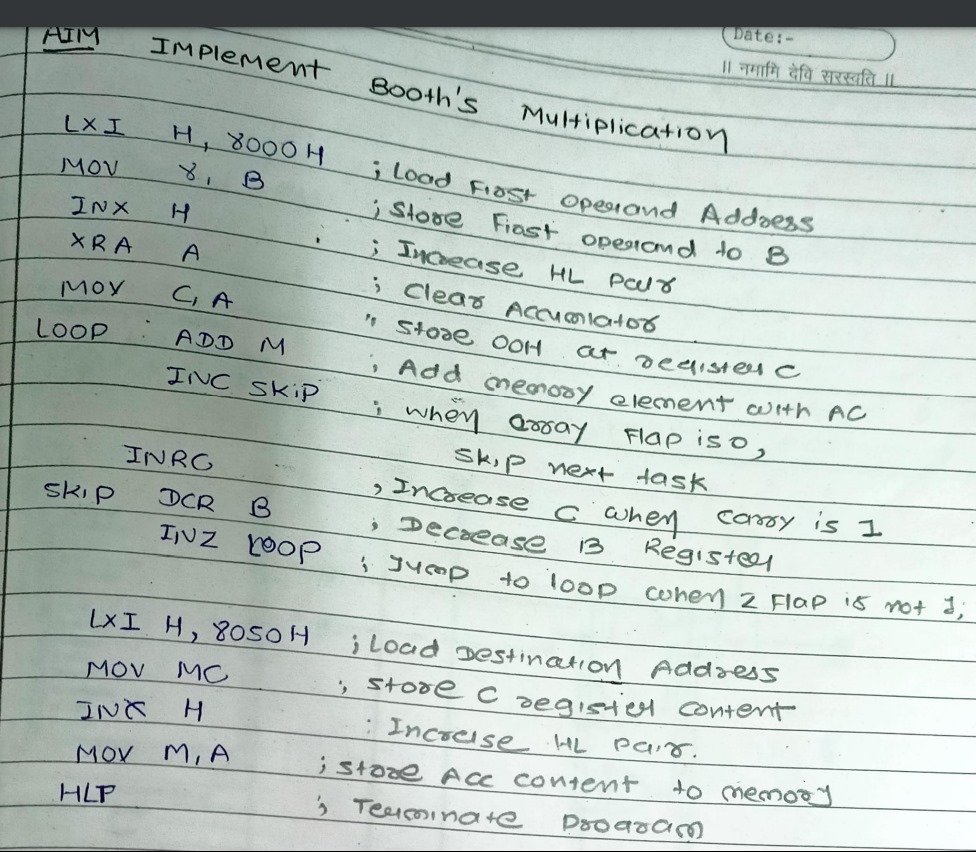 Date:-
॥ नमामि देवि सरस्वति ॥
AIM Implement Booth's Multiplication
LXI H, 8000H ; Load First operand Address
MOV 8, B ; Store First operand to B
INX H ; Increase HL pair
XRA A ; Clear Accumlator
MOV C, A " Store 00H at register C
LOOP : ADD M ; Add memory element with AC
INC SKIP ; when array Flap is 0,
skip next task
INRC , Increase C when carry is 1
SKIP DCR B ; Decrease B Register
INZ LOOP ; Jump to loop when Z Flap is not 1;
LXI H, 8050H ; Load Destination Address
MOV MC ; Store C register content
INX H : Increise HL pair.
MOV M, A ; Store Acc content to memory
HLP ; Terminate Program